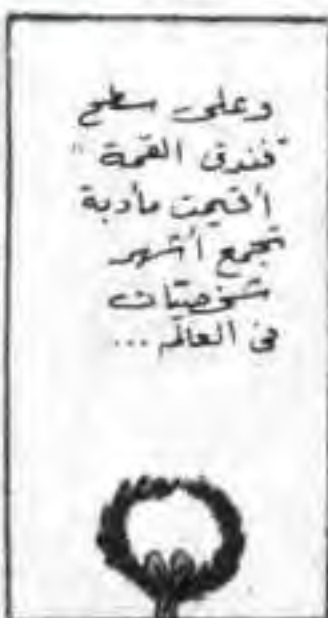 وعلى سطح
"فندق القمة"
أقيمت مأدبة
تجمع أشهر
شخصيّات
فى العالم ...